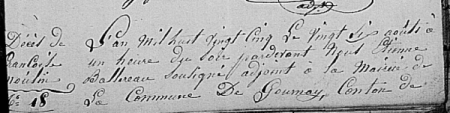 Décès de
nº 18
L'an mil huit vingt cinq le vingt six août à
un heure du soir pardevant nous Etienne
Ballereau soussigné adjoint à la Mairie de
La Commune De Gournay, Conton de